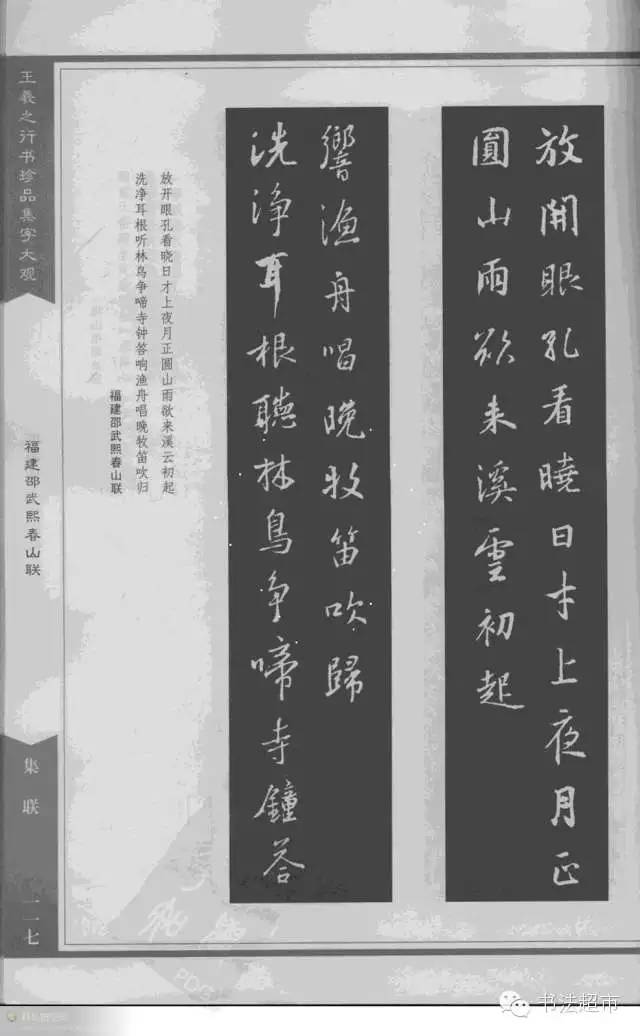 放開眼孔看曉日才上夜月正
圓山雨欲来溪雲初起
洗淨耳根聽林鳥争啼寺鐘答
響漁舟唱晚牧笛吹歸
放开眼孔看晓日才上夜月正圆山雨欲来溪云初起
洗净耳根听林鸟争啼寺钟答响渔舟唱晚牧笛吹归
福建邵武熙春山联
王羲之行书珍品集字大观
福建邵武熙春山联
集联
一一七
书法超市